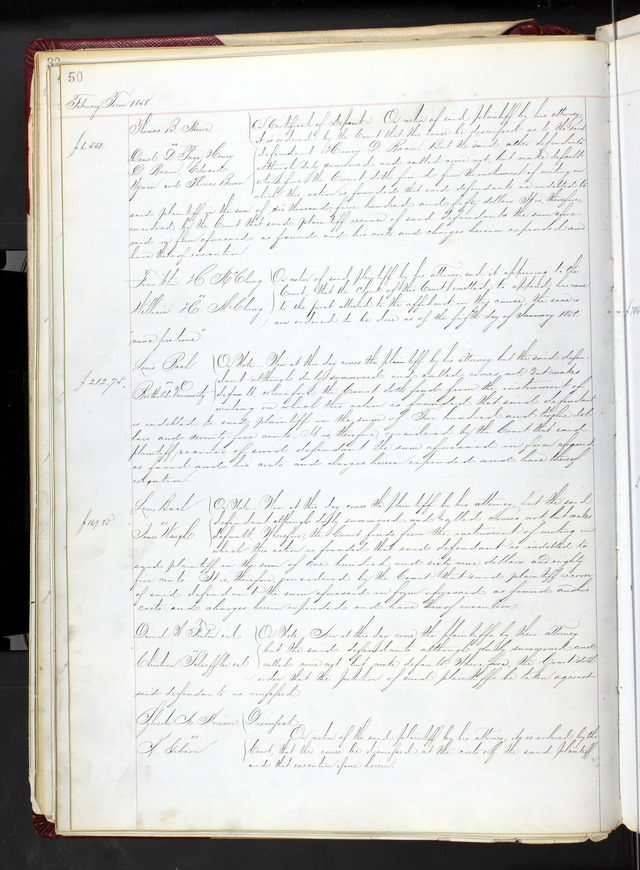 50
February Term 1858
Thomas B. 
On Certificate of Deposit. On motion of said plaintiff by his attorney
it is ordered by the Court that this cause be dismissed as to the said
defendant Henry D Bacon. But the said other defendants
although duly summoned and called come not but make default
wherefore the Court doth find from the instrument of writing on
which this action is founded that said defendants are indebted to
said plaintiff in the sum of six thousand five hundred and fifty dollars. It is therefore
considered by the Court that said plaintiff recover of said defendants the sum afore-
said in form aforesaid as found and his costs and charges herein expended and
have thereof execution.
$6,550
Daniel D Page Henry
D Bacon, Edward
Wyman and
vs
William H McClurg
On motion of said plaintiff by his attorney and it appearing to the
Court, that the Clerk of this Court omitted to append his name
to the jurat attached to the affidavit in this cause, the same is
now ordered to be done as of the day of January 1858.
"nunc pro tunc"
$212.75.
Louis
On Note. Now at this day comes the plaintiff by his attorney but the said defen-
dant although duly summoned and called, comes not but makes
default wherefore the Court doth find from the instrument of
writing on which this action is founded that said defendant
is indebted to said plaintiff in the sum of Two hundred and twelve dol-
lars and seventy five cents. It is therefore considered by the Court that said
plaintiff recover of said defendant the sum aforesaid in form aforesaid
as found and his costs and charges herein expended and have thereof
execution.
$169.85
Louis
On Note. Now at this day comes the plaintiff by his attorney but the said
defendant although duly summoned and called comes not, but makes
default. Wherefore, the Court finds from the instrument of writing on
which this action is founded that said defendant is indebted to
said plaintiff in the sum of one hundred and sixty nine dollars and eighty
five cents. It is therefore considered by the Court that said plaintiff recover
of said defendant the sum aforesaid in form aforesaid as found and his
costs and charges herein expended and have thereof execution.
David et al
On Note. Now at this day come the plaintiffs by their attorney
but the said defendants although duly summoned and
called come not but make default. Wherefore, the Court doth
order that the petition of said plaintiffs be taken against
said defendants as confessed.
Christian et al
Dismissed.
On motion of the said plaintiff by his attorney it is ordered by the
Court, that this cause be dismissed at the costs of the said plaintiff
and that execution issue herein.
Gibson